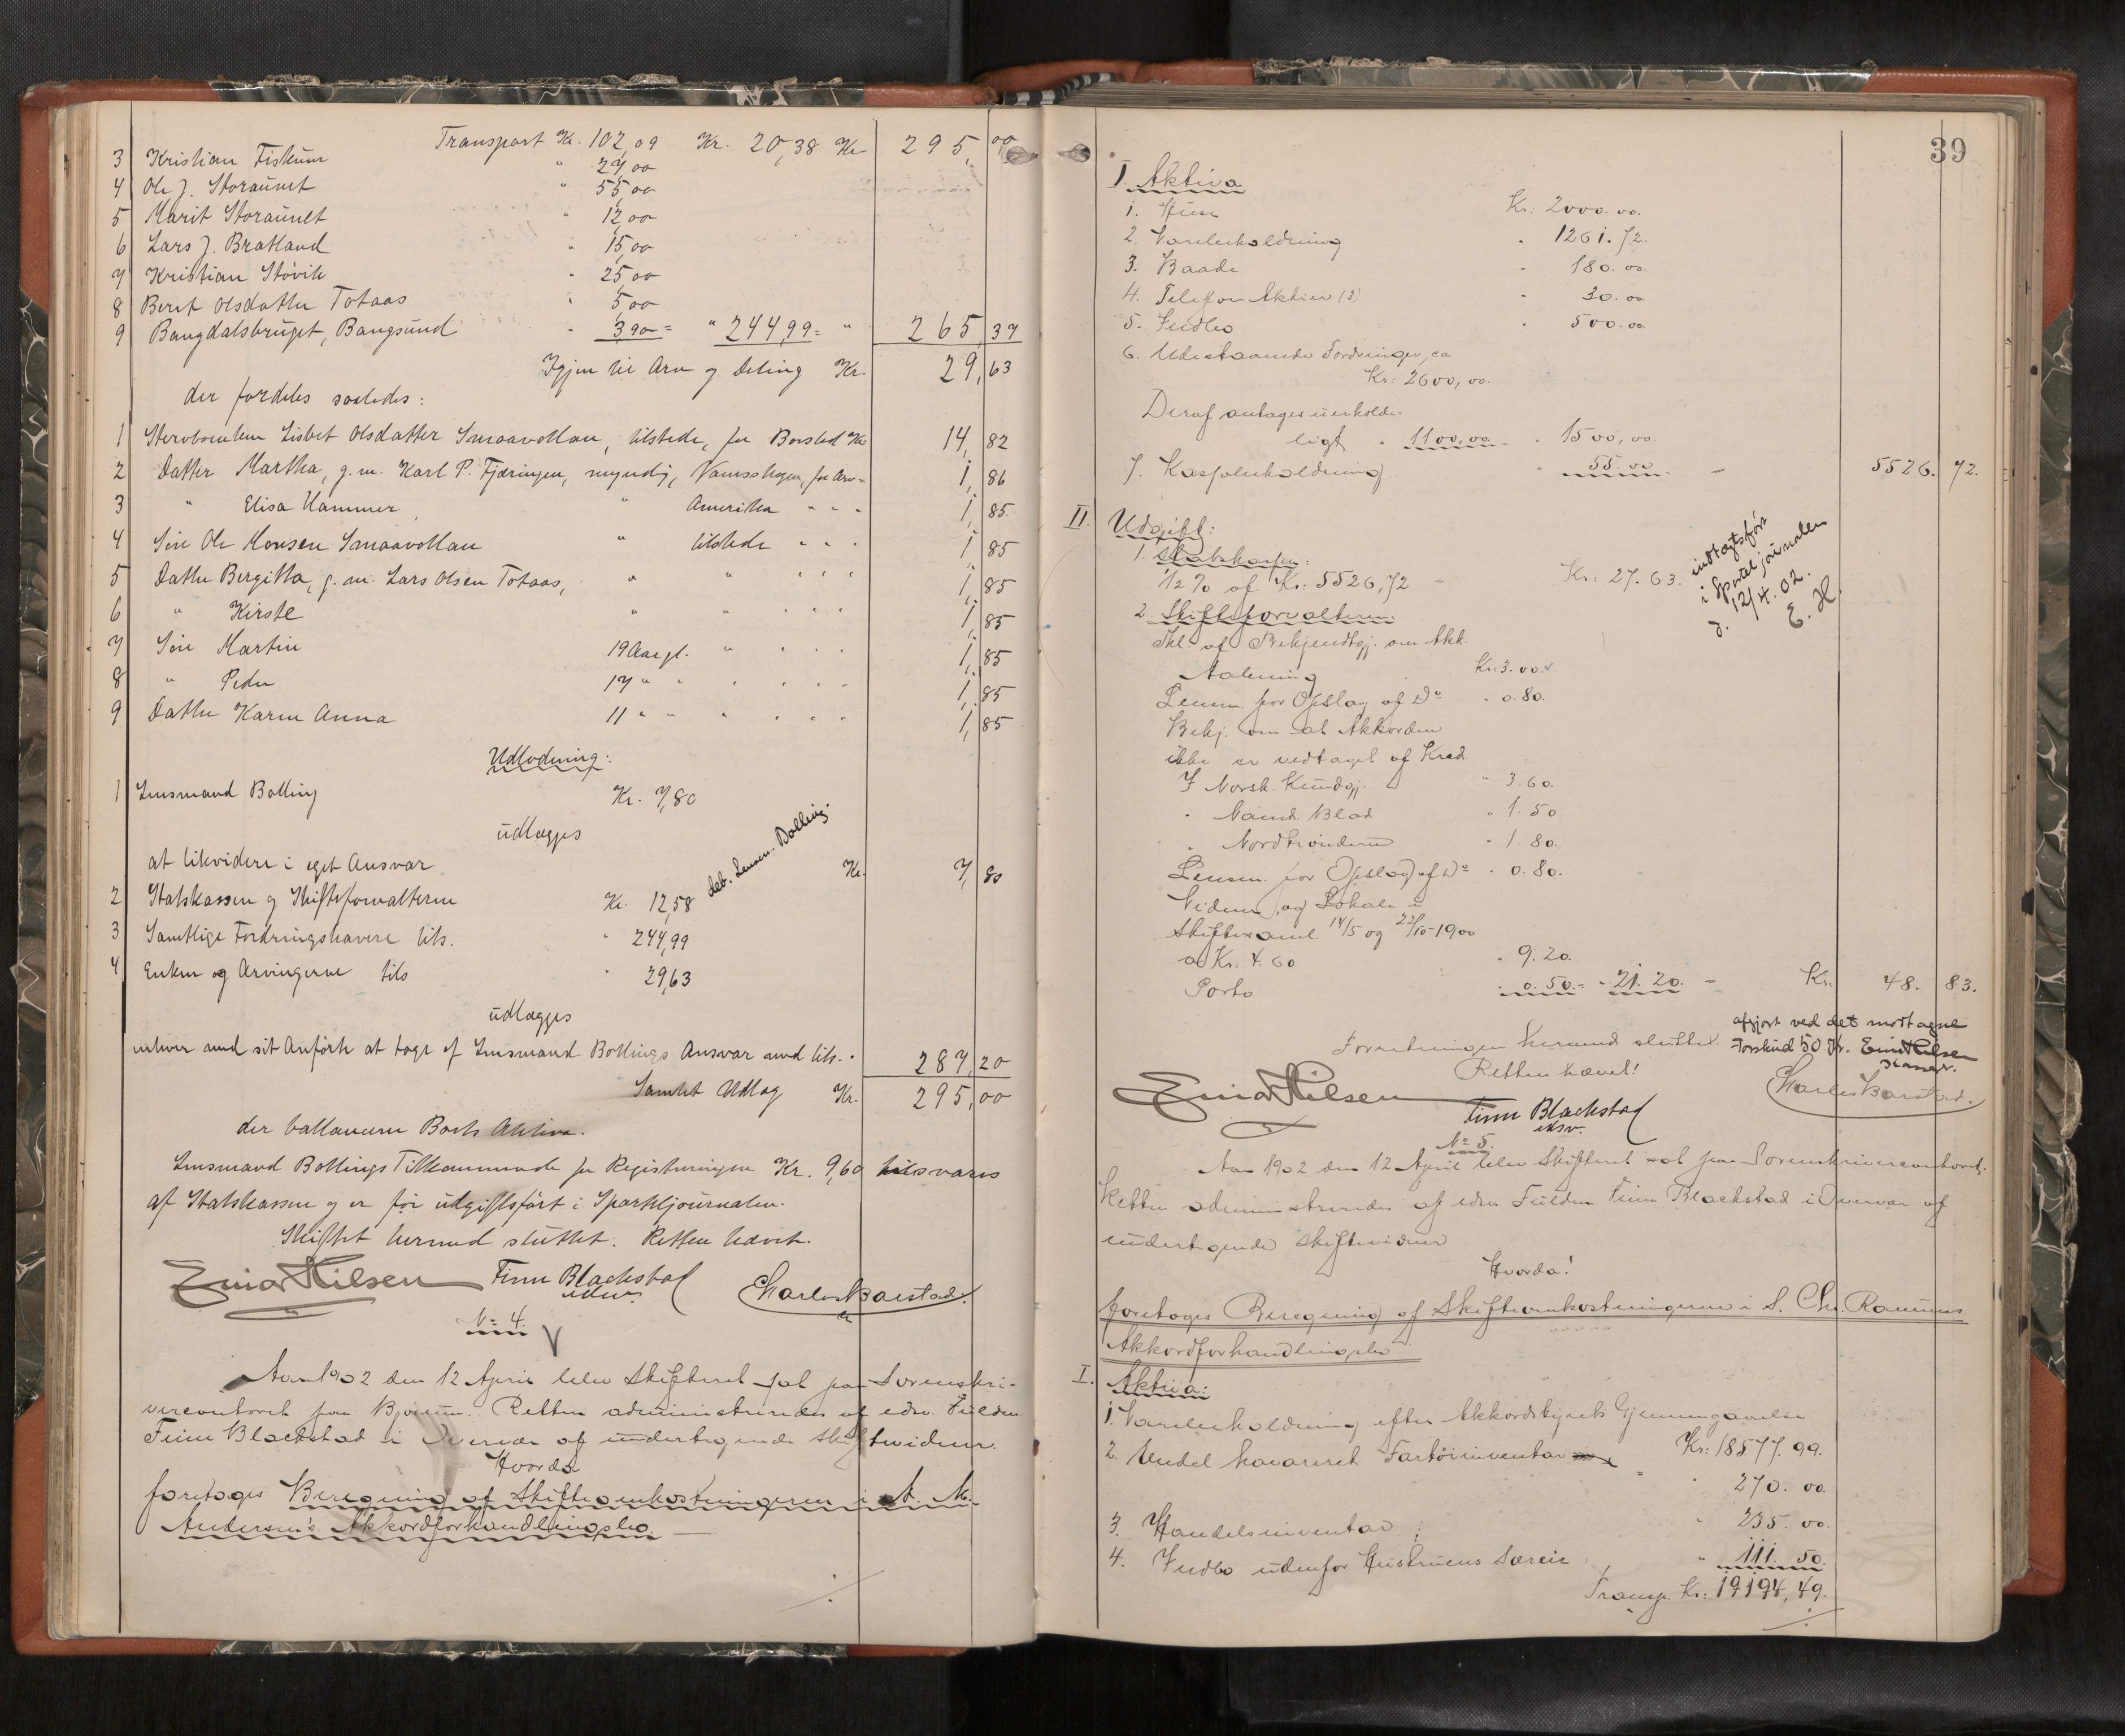 Transport Kr. 102,09 Kr. 20,38 Kr. 295,00
3 Kristian Fiskum " 27,00
4 Ole J. Storaunet " 55,00
5 Marit Storaunet " 12,00
6 Lars J. Bratland " 15,00
7 Kristian Støvik " 25,00
8 Berit Olsdatter Totaas " 5,00
9 Bangdalsbruget, Bangsund " 3,90 = " 244,99 = " 265,37
Igjen til Arv og Deling Kr. 29,63
der fordeles saaledes:
1 Stervboenken Lisbet Olsdatter Smaavollan, tilstede, for Boeslod Kr. 14,82
2 Datter Martha, g. m. Karl P. Fjæringen, myndig, for Arv " 1,86
3 " Elisa Hammer " Amerika " " " 1,85
4 Søn Ole Monsen Smaavollan " tilstede " " " 1,85
5 Datter Bergitta, g. m. Lars Olsen Totaas, " " " " " 1,85
6 " Kirste " " " " " 1,85
7 Søn Martin 19 Aar gl. " " " " 1,85
8 " Peder 17 " " " " " " 1,85
9 Datter Karen Anna 11 " " " " " " 1,85
Udlodning:
1 Lensmand Bolling Kr. 7,80
udlægges
at likvidere i eget Ansvar Kr. 7,80
deb. Lensm. Bolling.
2 Statskassen og Skifteforvalteren Kr. 12,58
3 Samtlige Fordringshavere tils. " 244,99
4 Enken og Arvingerne tils " 29,63
udlægges
enhver med sit Anførte at tage af Lensmand Bollings Ansvar med tils. " 287,20
Samlet Udlæg Kr. 295,00
der ballancerer Boets Aktiva.
Lensmand Bollings Tilkommende for Registreringen Kr. 9,60 tilsvares
af Statskassen og er før udgiftsført i Sporteljournalen.
Skiftet hermed sluttet. Retten hævet.
Einar Hilsen Finn Blackstad Charles Barstad.
edsv.
No 4.
Aar 1902 den 12 April blev Skifteret sat paa Sorenskri-
vercontoret paa Bjørum. Retten administreredes af edsv. Fuldm.
Finn Blackstad i Overvær af undertegnede Skiftevidner.
Hvorda
foretoges Beregning af Skifteomkostningerne i A. M.
Andersen's Akkordforhandlingsbo.
39
I. Aktiva
1. Huse Kr: 2000.00.
2. Varebeholdning " 1261.72.
3. Baade " 180.00.
4. Telefon Aktier (3) " 30.00
5. Indbo " 500.00.
6. Udestaaende Fordringer, ca
Kr: 2600,00.
Deraf antages uerholde-
ligt " 1100,00 " 1500,00.
7. Kassebeholdning " 55.00 — 5526.72.
II. Udgift:
1. Statskassen:
1/2 % af Kr: 5526,72 — Kr: 27.63.
indtægtsført
i Sportel journalen
d. 12/4.02.
E. H.
2. Skifteforvalteren
Bekjendtgj. om Akk.
Aabning Kr: 3.00.
Lensm. for Opslag af Do " 0.80.
Bekj. om at Akkorden
ikke er vedtaget af Kred.
I Norsk. Kundgj. " 3.60.
" Namd. Blad " 1.50
" Nordtrønderen " 1.80.
Lensm. for Opslag af Do " 0.80.
Vidner og Lokale i
Skiftesaml. 14/5 og 22/10-1900
a Kr: 4.60 " 9.20.
Porto " 0.50. = " 21.20. — Kr. 48.83.
afgjort ved det modtagne
Forskud 50 Kr. Einar Hilsen
Forretningen hermed sluttet.
Retten hævet!
Einar Hilsen Finn Blackstad Charles Barstad.
edsv.
No 5.
Aar 1902 den 12 April blev Skifteret sat paa Sorenskrivercontoret.
Retten administreredes af edsv. Fuldm. Finn Blackstad i Overvær af
undertegnede Skiftevidner
Hvorda!
foretoges Beregning af Skifteomkostningerne i S. Chr. Rammes
Akkordforhandlingsbo
I. Aktiva:
1. Varebeholdning efter Akkordstyrets Gjennemgaaelse
Kr: 18577.99.
2. Endel havareret Fartøiinventar
" 270.00.
3. Handelsinventar " 235.00
4. Indbo udenfor Hustruens Særeie " 111.50.
Transp. Kr: 19194,49.